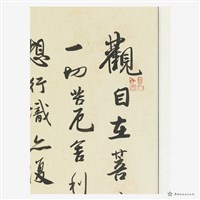 觀自在菩
一切苦厄舍利
想行識亦復